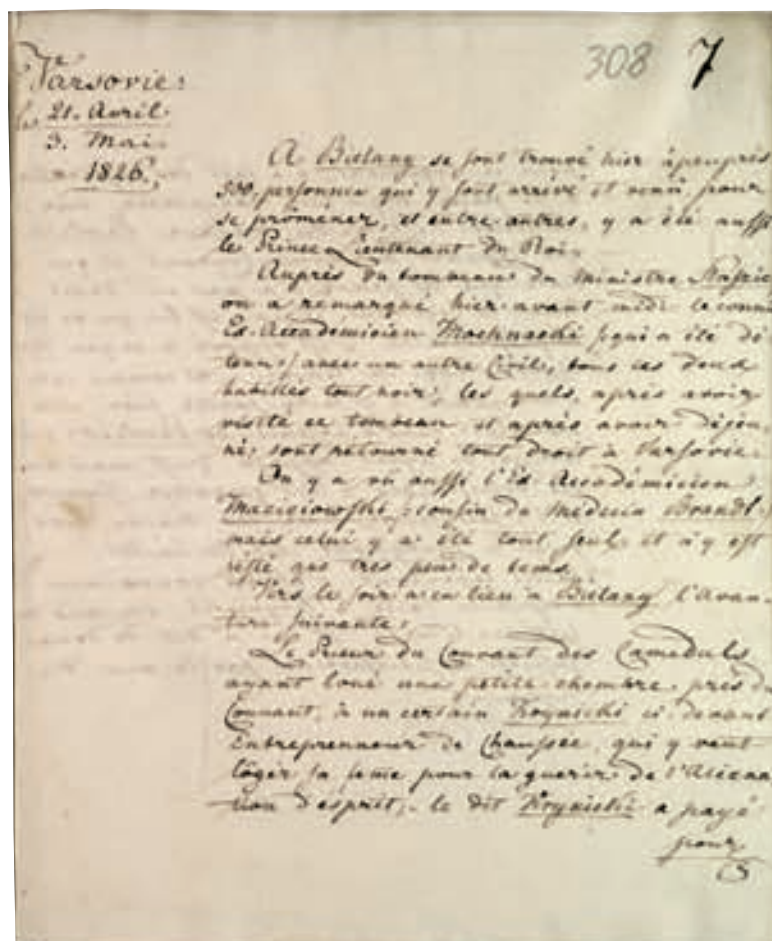 308 7
Varsovie:
le 21. Avril.
3. Mai.
1826.
A Bielany se sont trouvé hier àpeuprés
300. personnes qui y sont arrivé et venû pour
se promener, et entre autres, y a été aussi
le Prince Lieutenant du Roi.
Auprés du tombeau du Ministre Staszic
on a remarqué hier avant midi le connu
Ex-Accademicien Mochnacki /:qui a été dé-
tenu:/ avec un autre Civil, tous les deux
habillés tout noir, les quels, aprés avoir
visité ce tombeau et aprés avoir déjeu-
né, sont retourné tout droit à Varsovie.
On y a vû aussi l'Ex-Accadémicien
Maciejowski, cousin du Médecin Brandt,
mais celui y a été tout seul et n'y est
resté que tres peu de tems.
Vers le soir a eu lieu a Bielany l'avan-
ture suivante:
Le Prieur du Couvant des Camedules
ayant loué une petite chembre prés du
Couvant, à un certain Krynicki ci-devant
Entreprenneur de Chaussée, qui y veut
loger sa feme pour la guerir de l'Aliena-
tion d'esprit, le dit Krynicki a payé
pour